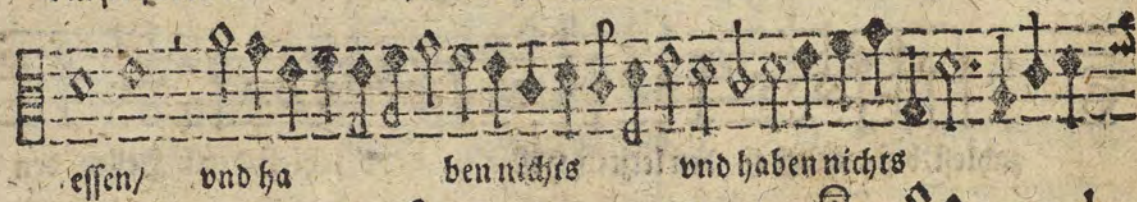 eſſen/ vnd ha ben nichts vnd haben nichts